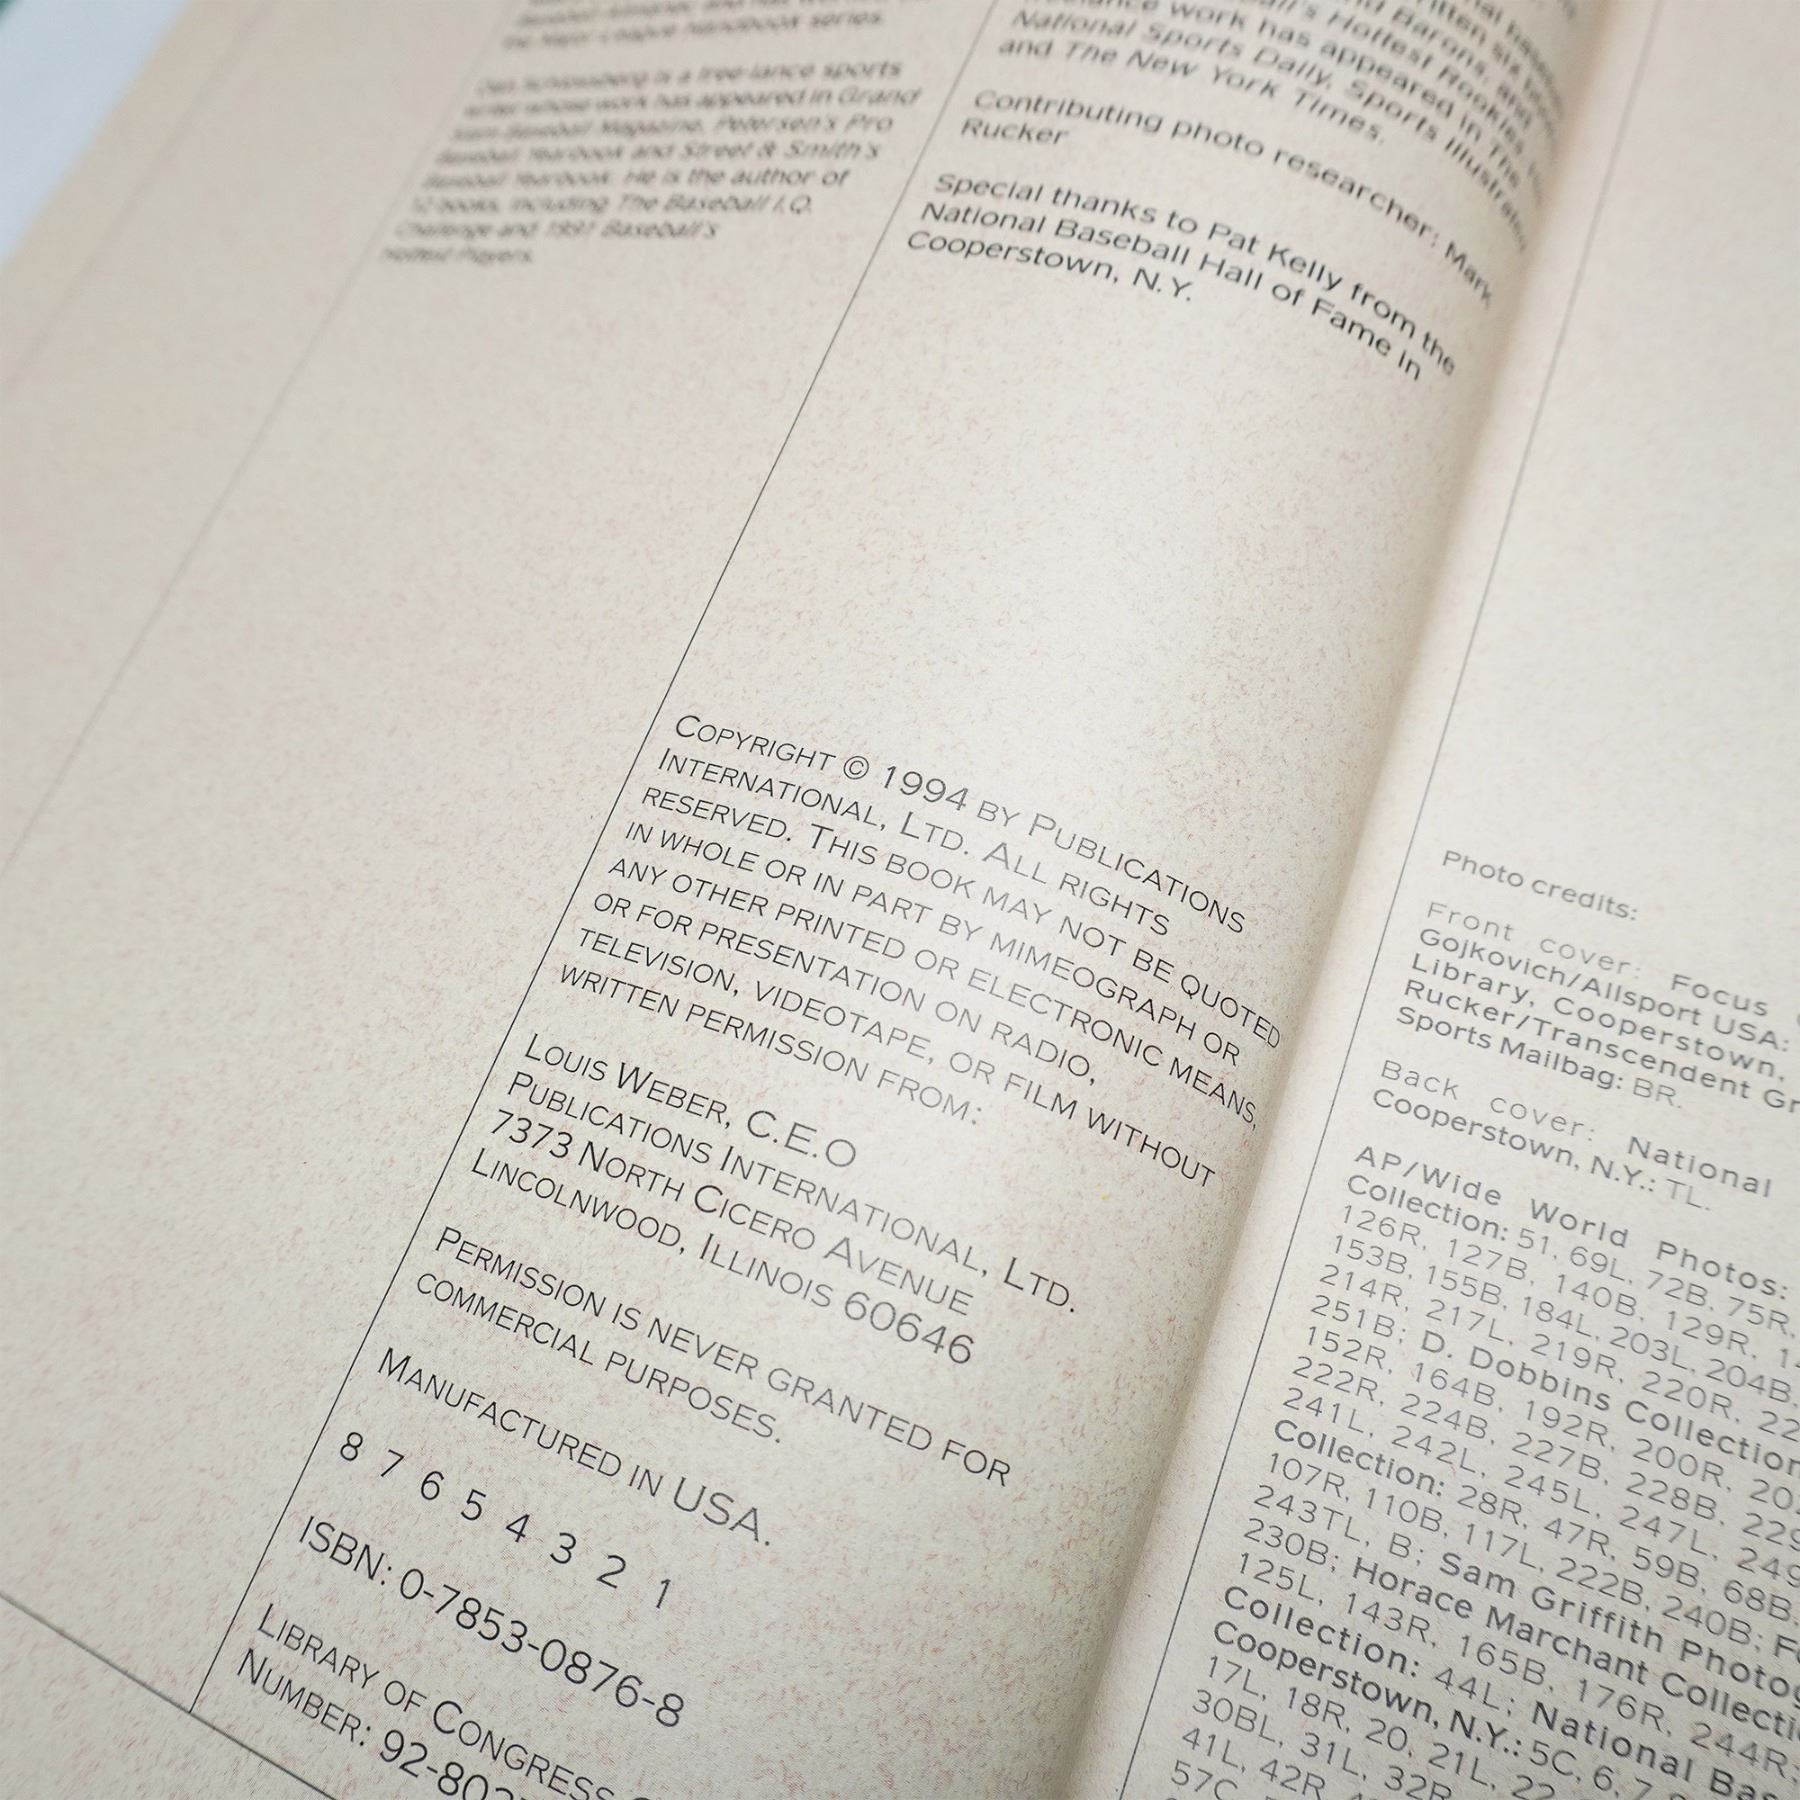 the Major League Handbook series.
Dan Schlossberg is a free-lance sports
writer whose work has appeared in Grand
Slam Baseball Magazine, Petersen's Pro
Baseball Yearbook and Street & Smith's
Baseball Yearbook. He is the author of
12 books, including The Baseball I.Q.
Challenge and 1991 Baseball's
Hottest Players.
work has appeared in The
National Sports Daily, Sports Illustrated
and The New York Times.
Contributing photo researcher: Mark
Rucker
Special thanks to Pat Kelly from the
National Baseball Hall of Fame in
Cooperstown, N.Y.
Copyright © 1994 by Publications
International, Ltd. All rights
reserved. This book may not be quoted
in whole or in part by mimeograph or
any other printed or electronic means,
or for presentation on radio,
television, videotape, or film without
written permission from:
Louis Weber, C.E.O
Publications International, Ltd.
7373 North Cicero Avenue
Lincolnwood, Illinois 60646
Permission is never granted for
commercial purposes.
Manufactured in USA.
8 7 6 5 4 3 2 1
ISBN: 0-7853-0876-8
Library of Congress
Number: 92-802
Photo credits:
Front cover: Focus
Gojkovich/Allsport USA:
Library, Cooperstown,
Rucker/Transcendent Gr
Sports Mailbag: BR.
Back cover: National
Cooperstown, N.Y.: TL.
AP/Wide World Photos:
Collection: 51, 69L, 72B, 75R,
126R, 127B, 140B, 129R, 14
153B, 155B, 184L, 203L, 204B,
214R, 217L, 219R, 220R, 22
251B; D. Dobbins Collection
152R, 164B, 192R, 200R, 20
222R, 224B, 227B, 228B, 229
241L, 242L, 245L, 247L, 249
Collection: 28R, 47R, 59B, 68B,
107R, 110B, 117L, 222B, 240B; F
243TL, B; Sam Griffith Photog
230B; Horace Marchant Collecti
125L, 143R, 165B, 176R, 244R;
Collection: 44L; National Bas
Cooperstown, N.Y.: 5C, 6, 7,
17L, 18R, 20, 21L, 22
30BL, 31L, 32R
41L, 42R
57C